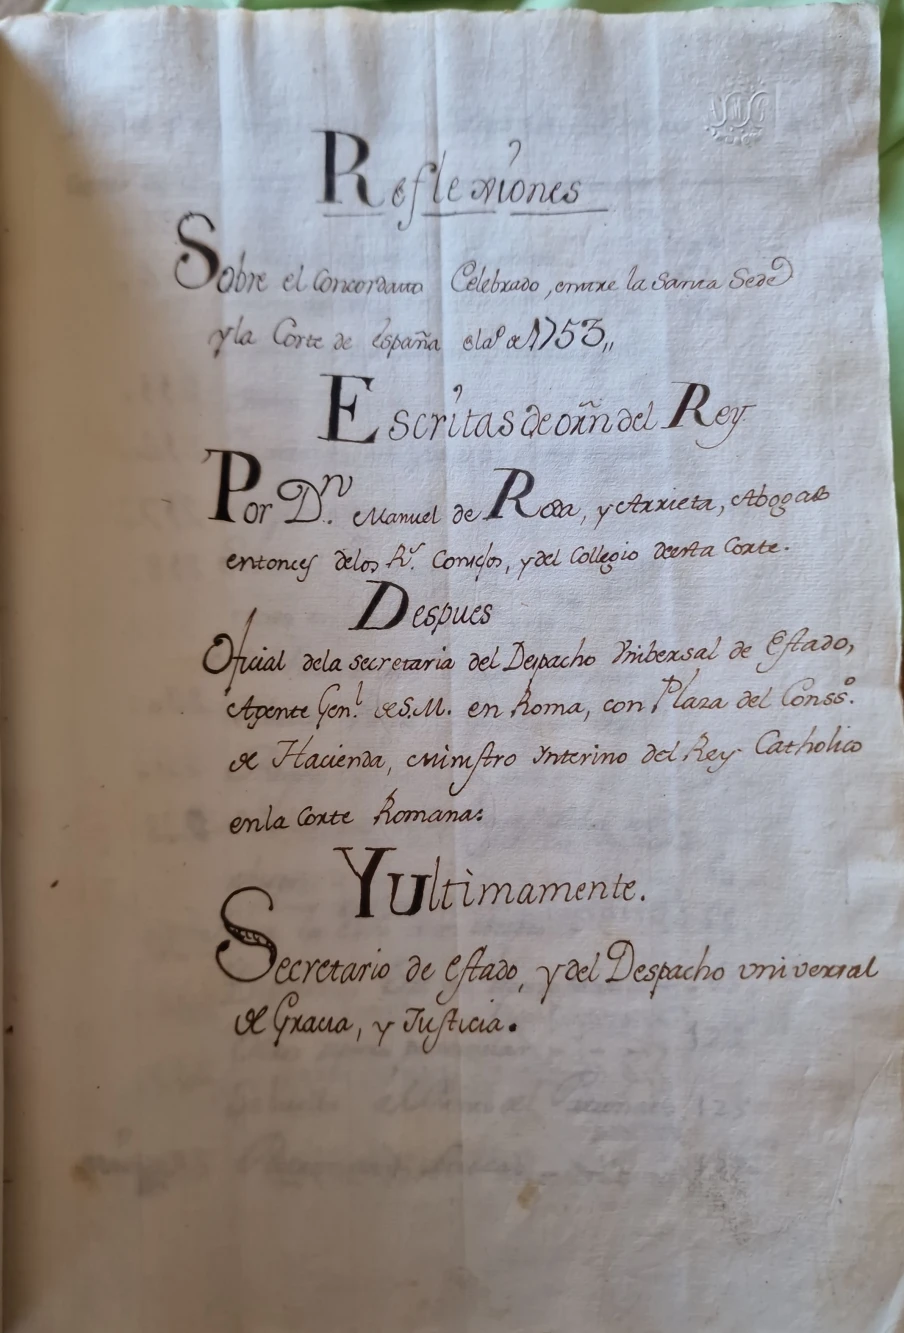 Reflexiones
Sobre el Concordato Celebrado, entre la Santa Sede
y la Corte de España el aº de 1753,,
Escritas de orñ del Rey
Por Dn. Manuel de Roda, y Arrieta, Abogado
entonces delos Rs. Consejos, y del Collegio deesta Corte.
Despues
Oficial dela secretaria del Despacho Vnibersal de Estado,
Agente Genl. de S.M. en Roma, con Plaza del Conssº.
de Hacienda, Ministro Ynterino del Rey Catholico
enla Corte Romana:
Y Ultimamente.
Secretario de Estado, y del Despacho universal
de Gracia, y Justicia.